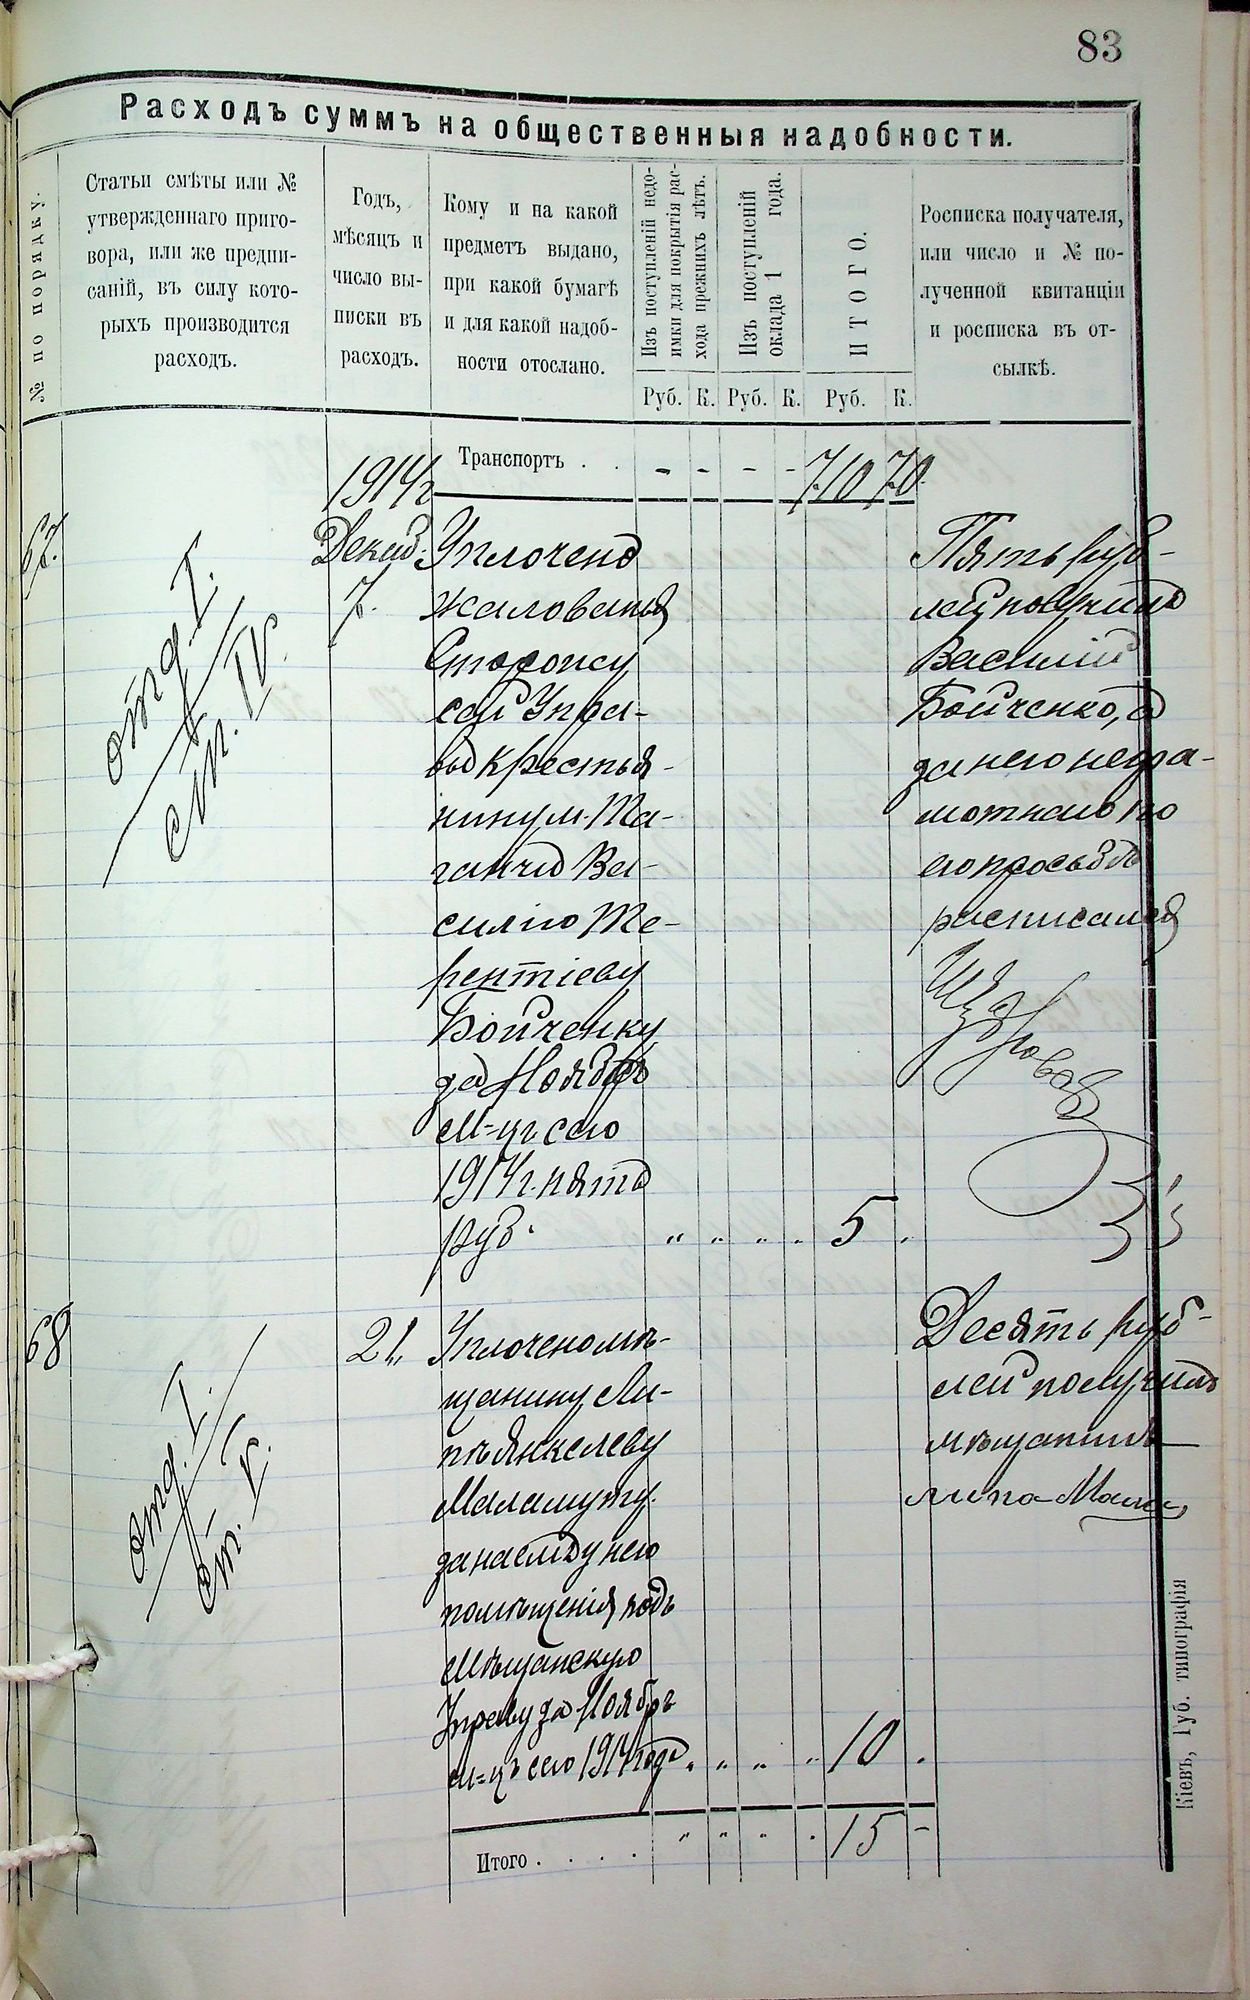 83
Расходъ суммъ на общественныя надобности.
№ по порядку.
Статьи смѣты или №
утвержденнаго приго-
вора, или же предпи-
саній, въ силу кото-
рыхъ производится
расходъ.
Годъ,
мѣсяцъ и
число вы-
писки въ
расходъ.
Кому и на какой
предметъ выдано,
при какой бумагѣ
и для какой надоб-
ности отослано.
Изъ поступленій недо-
имки для покрытія рас-
хода прежнихъ лѣтъ.
Изъ поступленій
оклада 1 года.
ИТОГО.
Росписка получателя,
или число и № по-
лученной квитанціи
и росписка въ от-
сылкѣ.
Руб. К. Руб. К. Руб. К.
Транспортъ . . - - - - 710 70.
1914 г
67.
отд. I.
ст. IV.
Декаб.
7.
Уплочено
жалованья
Сторожу
сей Упра-
вы крестья-
нину м. Та-
ганчи Ва-
силію Те-
рентіеву
Бойченку
за Ноябрь
м-цъ сего
1914 г. пять
руб. " " " " 5 .
Пять руб-
лей получилъ
Василій
Бойченко, а
за него негра-
мотнаго по
его просьбѣ
расписался
68
отд. I.
ст. V.
21.
Уплочено мѣ-
щанину Ли-
пѣ Янкелеву
Маламуту
за наемъ у него
помѣщенія подъ
Мѣщанскую
Управу за Ноябрь
м-цъ сего 1914 года " " " " 10 .
Десять руб-
лей получилъ
мѣщанинъ
Липа
Итого . . . . " " " . 15 -
Кіевъ, Губ. типографія